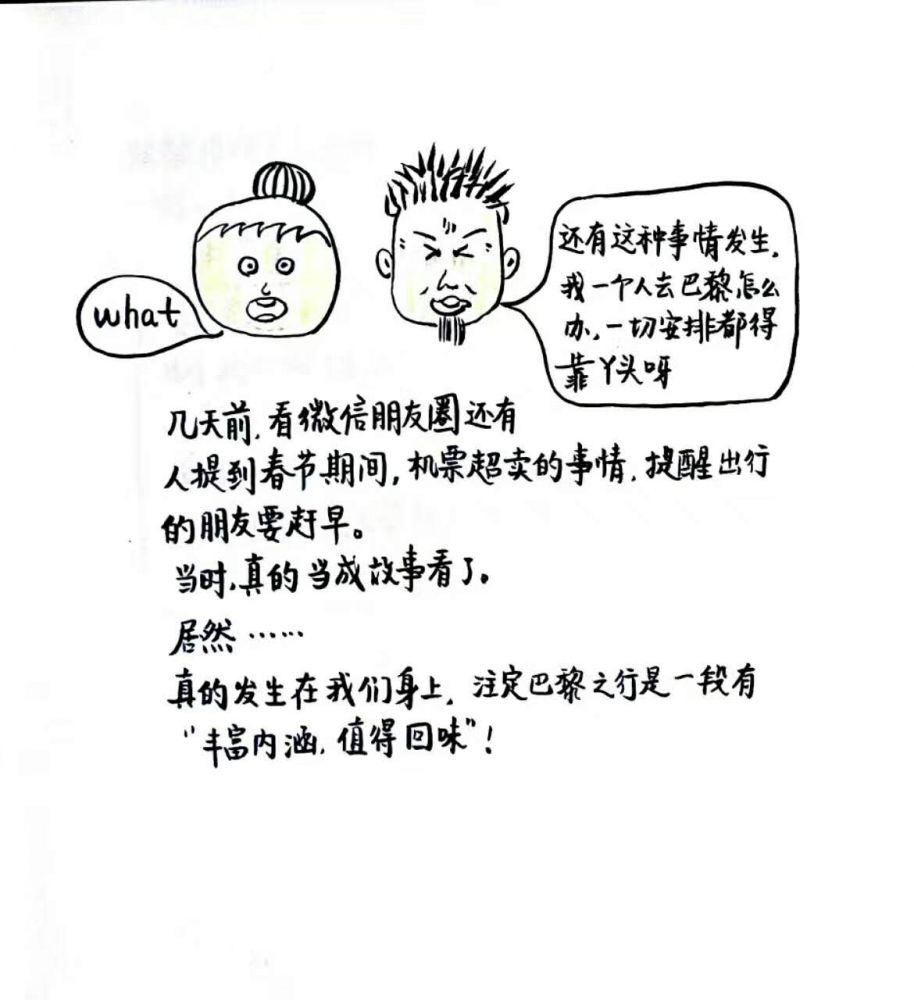 what
还有这种事情发生,
我一个人去巴黎怎么
办,一切安排都得
靠丫头呀
几天前,看微信朋友圈还有
人提到春节期间,机票超卖的事情,提醒出行
的朋友要赶早。
当时,真的当成故事看了。
居然……
真的发生在我们身上,注定巴黎之行是一段有
“丰富内涵,值得回味”!